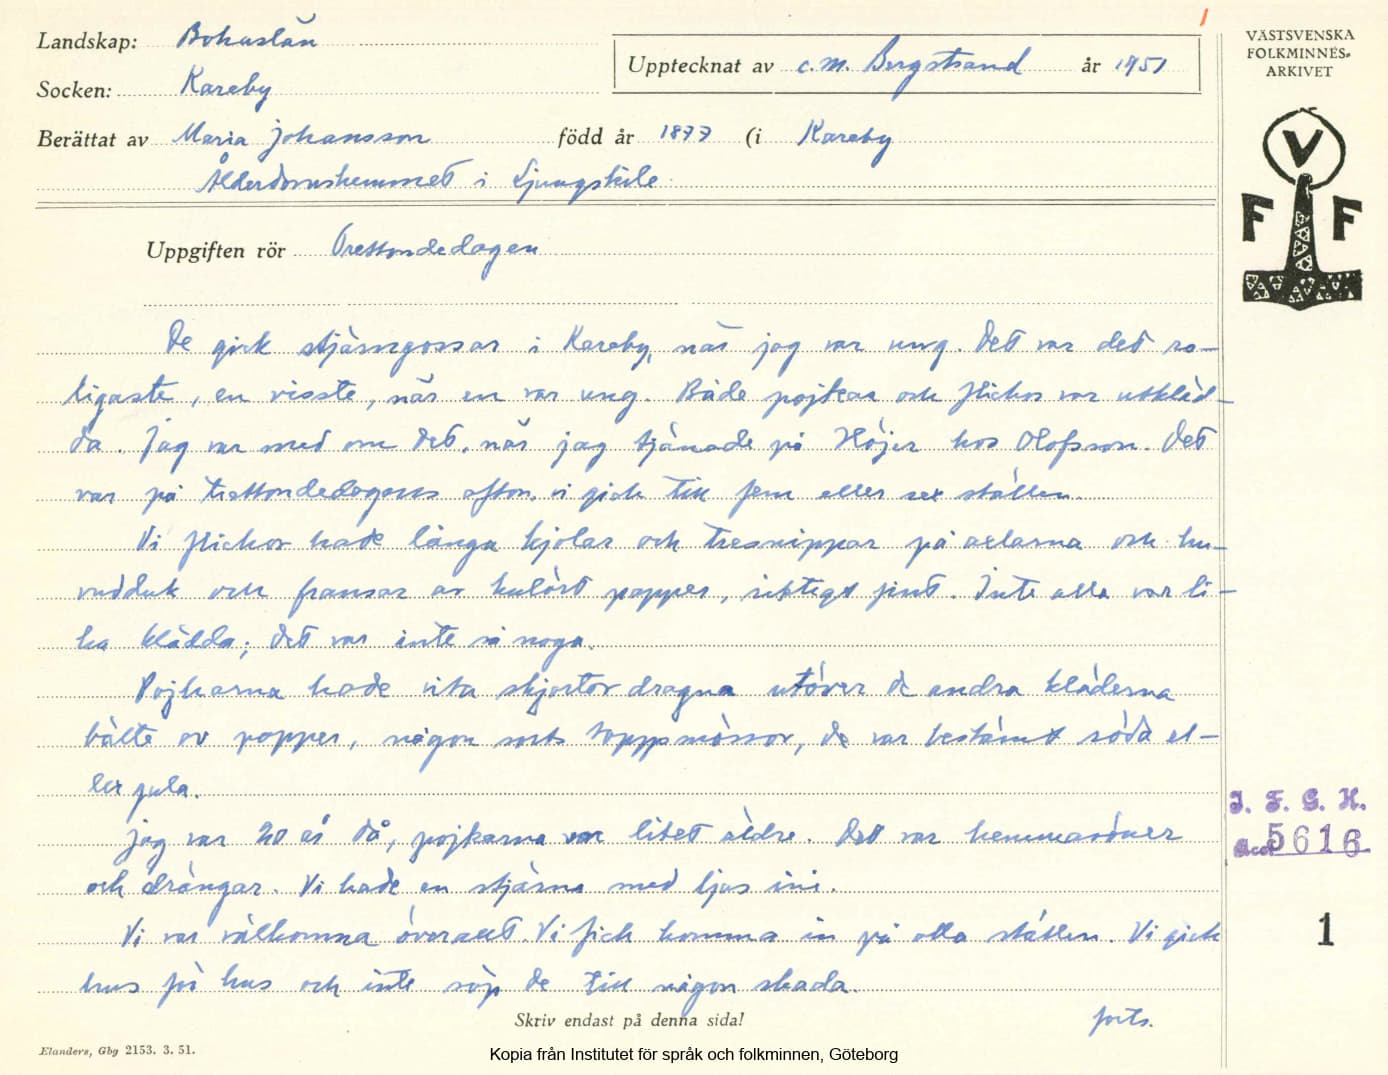 1
Landskap: Bohuslän
Upptecknat av C.M. Bergstrand år 1951
VÄSTSVENSKA
FOLKMINNES-
ARKIVET
Socken: Kareby
Berättat av Maria Johansson född år 1877 (i Kareby
Ålderdomshemmet i Ljungskile
V
F F
Uppgiften rör Trettondedagen
De gick stjärngossar i Kareby, när jag var ung. Det var det ro-
ligaste, en visste, när en var ung. Både pojkar och flickor var utkläd-
da. Jag var med om det, när jag tjänade på Höjer hos Olofsson. Det
var på trettondedagens afton. Vi gick till fem eller sex ställen.
Vi flickor hade långa kjolar och tresnippar på axlarna och hu-
vudduk och fransar av kulört papper, riktigt fint. Inte alla var li-
ka klädda; det var inte så noga.
Pojkarna hade vita skjortor dragna utöver de andra kläderna
bälte av papper, någon sorts toppmössor, de var bestämt röda el-
ler gula.
Jag var 20 år då, pojkarna var litet äldre. Det var hemmasöner
och drängar. Vi hade en stjärna med ljus ini.
Vi var välkomna överallt. Vi fick komma in på alla ställen. Vi gick
hus för hus och inte söp de till någon skada.
I. F. G. H.
Acc 5616
1
Skriv endast på denna sida!
forts.
Elanders, Gbg 2153. 3. 51.
Kopia från Institutet för språk och folkminnen, Göteborg